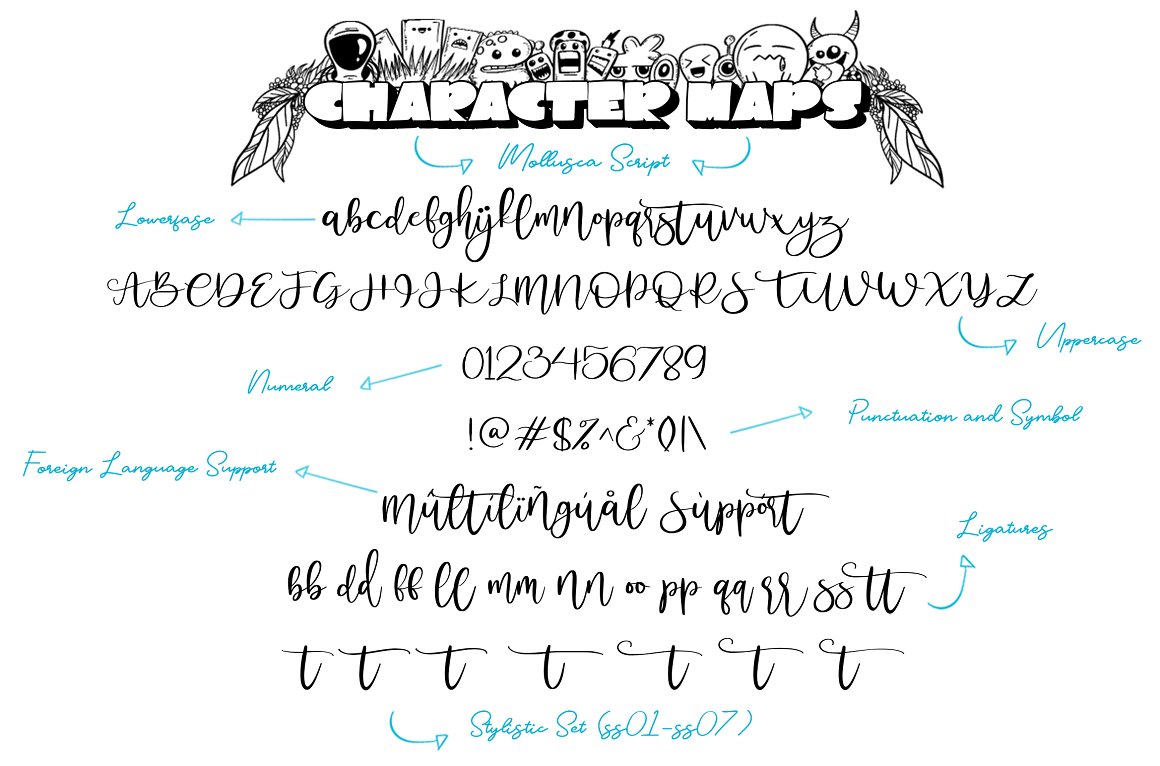 CHARACTER MAPS
Mollusca Script
Lowerfase
abcdefghijklmnopqrstuvwxyz
ABCDEFGHIJKLMNOPQRSTUVWXYZ
Uppercase
0123456789
Numeral
!@#$%^&*()|\
Punctuation and Symbol
Foreign Language Support
múltílïñgúål Sùppórt
Ligatures
bb dd ff ll mm nn oo pp qq rr ss tt
t t t t t t t
Stylistic Set (ss01-ss07)